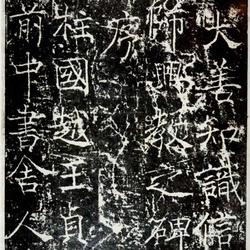 大善知識信
師興教之碑
柱國越王貞
前中書舍人